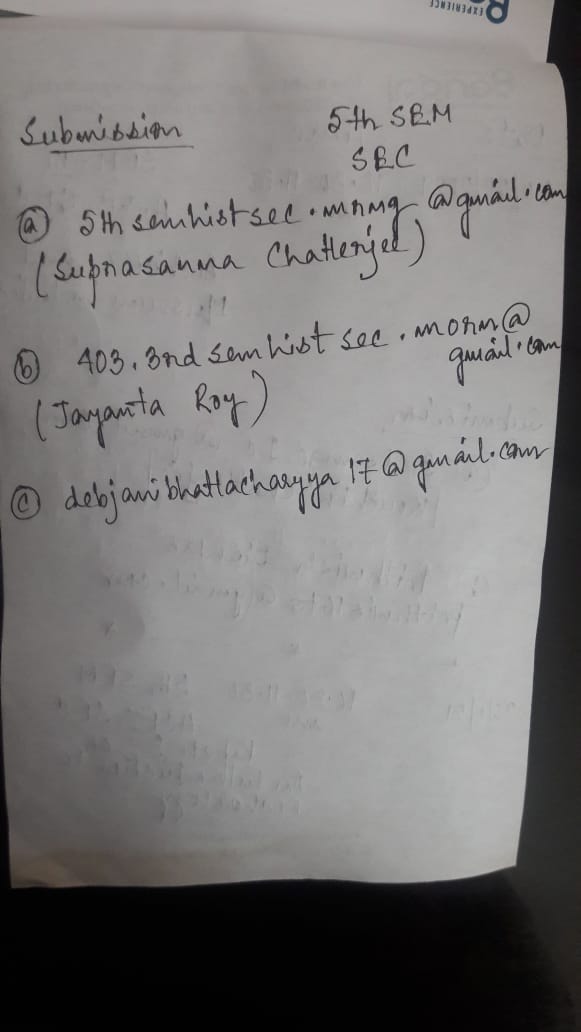 EXPERIENCE
Submission
5th SEM
SEC
(a) 5th semhistsec.mnmg@gmail.com
(Suprasanna Chatterjee)
(b) 403.3rd semhist sec.morm@
gmail.com
(Jayanta Roy)
(c) debjanibhattacharyya17@gmail.com